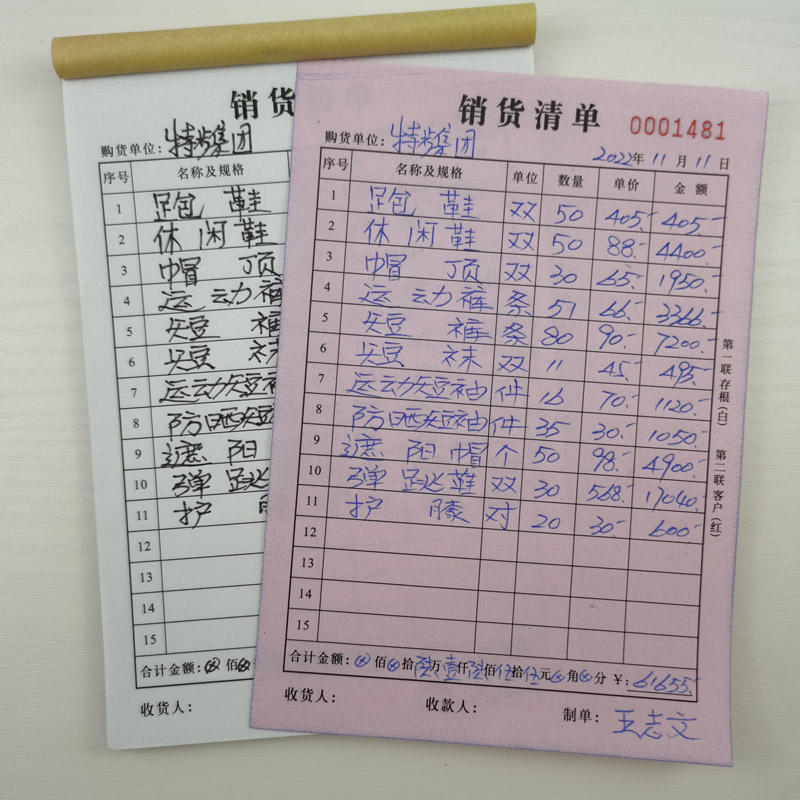 销货
购货单位：特步集团
序号 名称及规格
1 足包 鞋
2 休闲鞋
3 帽 顶
4 运动裤
5 短 裤
6 短 袜
7 运动短袖
8 防晒短袖
9 遮 阳
10 弹跳
11 护
12
13
14
15
合计金额：⊗佰⊗
收货人：
销货清单 0001481
购货单位：特步集团 2022年11月11日
序号 名称及规格 单位 数量 单价 金额
1 足包 鞋 双 50 405.- 405.-
2 休闲鞋 双 50 88.- 4400.-
3 帽 顶 双 30 65.- 1950.-
4 运动裤 条 51 66.- 3366.-
5 短 裤 条 80 90.- 7200.-
6 短 袜 双 11 45.- 495.-
7 运动短袖 件 16 70.- 1120.-
8 防晒短袖 件 35 30.- 1050.-
9 遮阳帽 个 50 98.- 4900.-
10 弹跳鞋 双 30 568.- 17040.-
11 护 膝 对 20 30.- 600.-
12
13
14
15
合计金额：⊗佰⊗拾陆万壹仟陆佰伍拾伍元⊗角⊗分 ¥：61655.-
收货人： 收款人： 制单：王志文
第一联存根（白） 第二联客户（红）